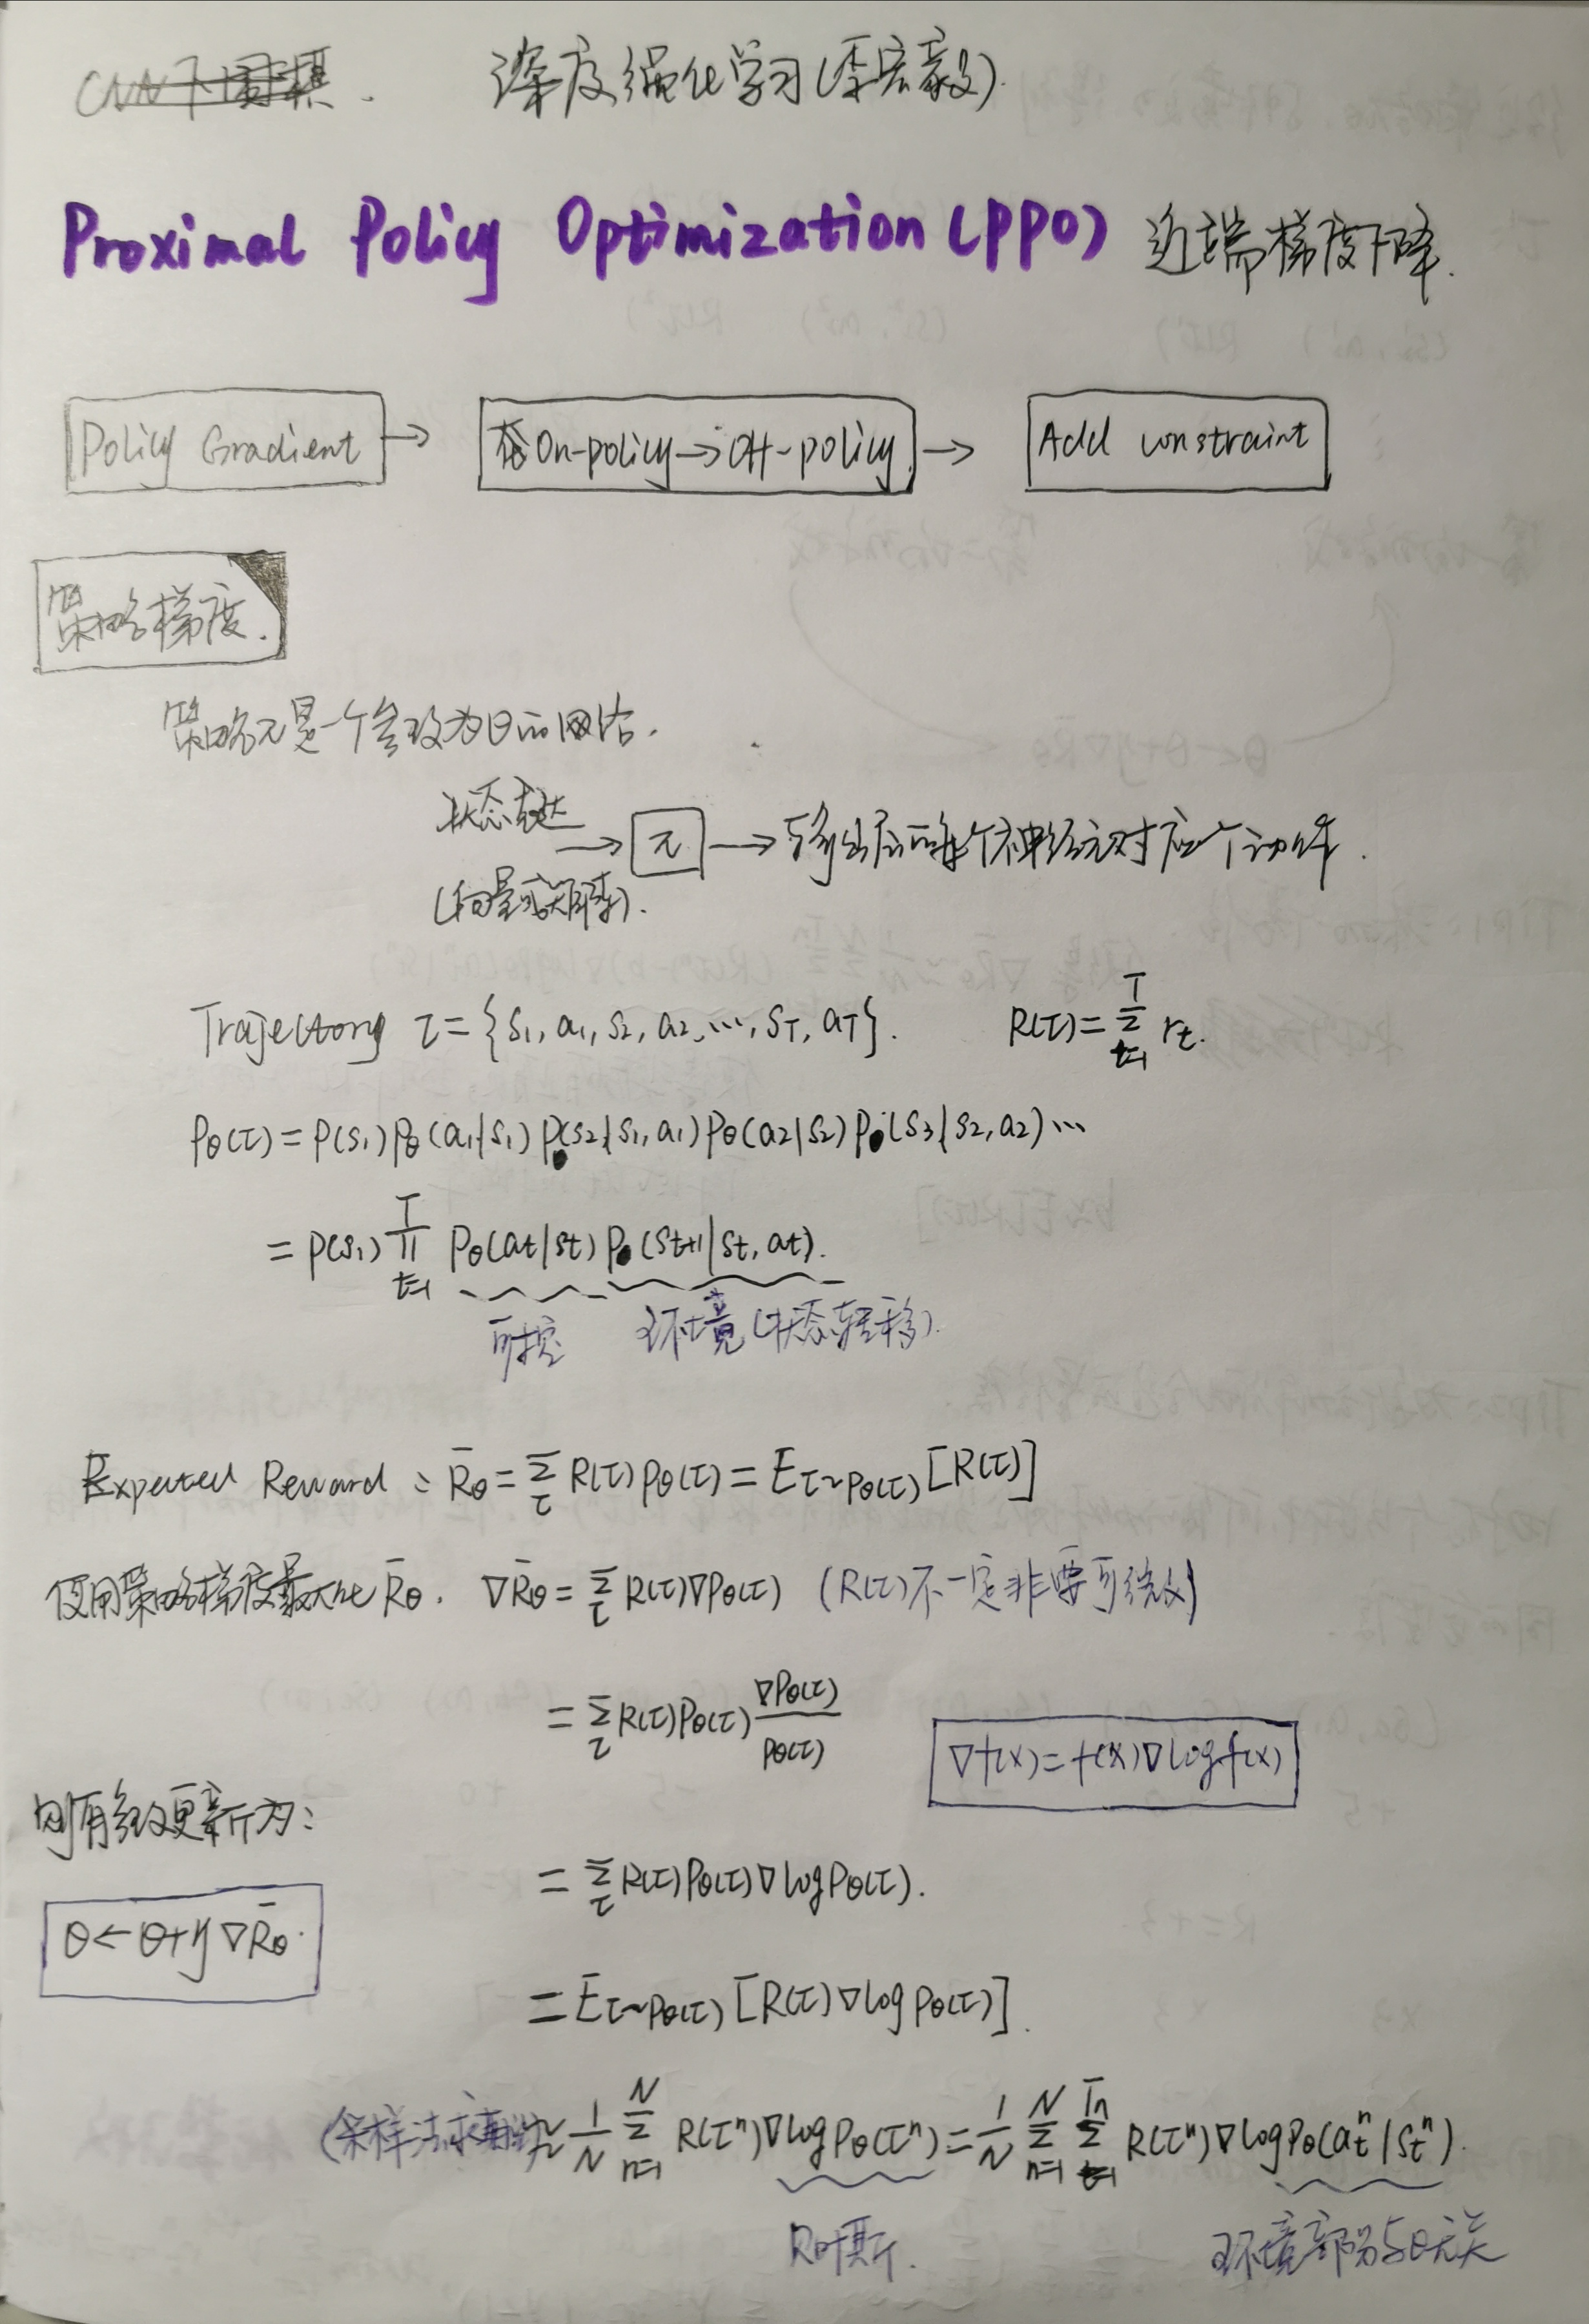 深度强化学习(李宏毅).
Proximal Policy Optimization (PPO) 近端梯度下降.
Policy Gradient → On-policy→Off-policy → Add constraint
策略梯度.
策略π是一个参数为θ的网络.
状态表达
→ π → 输出层的每个神经元对应一个动作.
(向量或矩阵).
Trajectory τ = {s₁, a₁, s₂, a₂, ..., s_T, a_T}. R(τ) = Σ_{t=1}^{T} r_t.
p_θ(τ) = p(s₁) p_θ(a₁|s₁) p(s₂|s₁, a₁) p_θ(a₂|s₂) p(s₃|s₂, a₂) ...
= p(s₁) Π_{t=1}^{T} p_θ(a_t|s_t) p(s_{t+1}|s_t, a_t).
可控 环境(状态转移).
Expected Reward: R̄_θ = Σ_τ R(τ) p_θ(τ) = E_{τ~p_θ(τ)} [R(τ)]
使用策略梯度最大化 R̄_θ. ∇R̄_θ = Σ_τ R(τ)∇p_θ(τ) (R(τ)不一定非要可微)
= Σ_τ R(τ) p_θ(τ) ∇p_θ(τ)/p_θ(τ)
∇f(x) = f(x)∇log f(x)
则有参数更新为:
= Σ_τ R(τ) p_θ(τ) ∇log p_θ(τ).
θ ← θ+η∇R̄_θ.
= E_{τ~p_θ(τ)} [R(τ)∇log p_θ(τ)].
(采样法求 ≈ 1/N Σ_{n=1}^{N} R(τⁿ)∇log p_θ(τⁿ) = 1/N Σ_{n=1}^{N} Σ_{t=1}^{T_n} R(τⁿ)∇log p_θ(a_tⁿ|s_tⁿ).
环境部分与θ无关